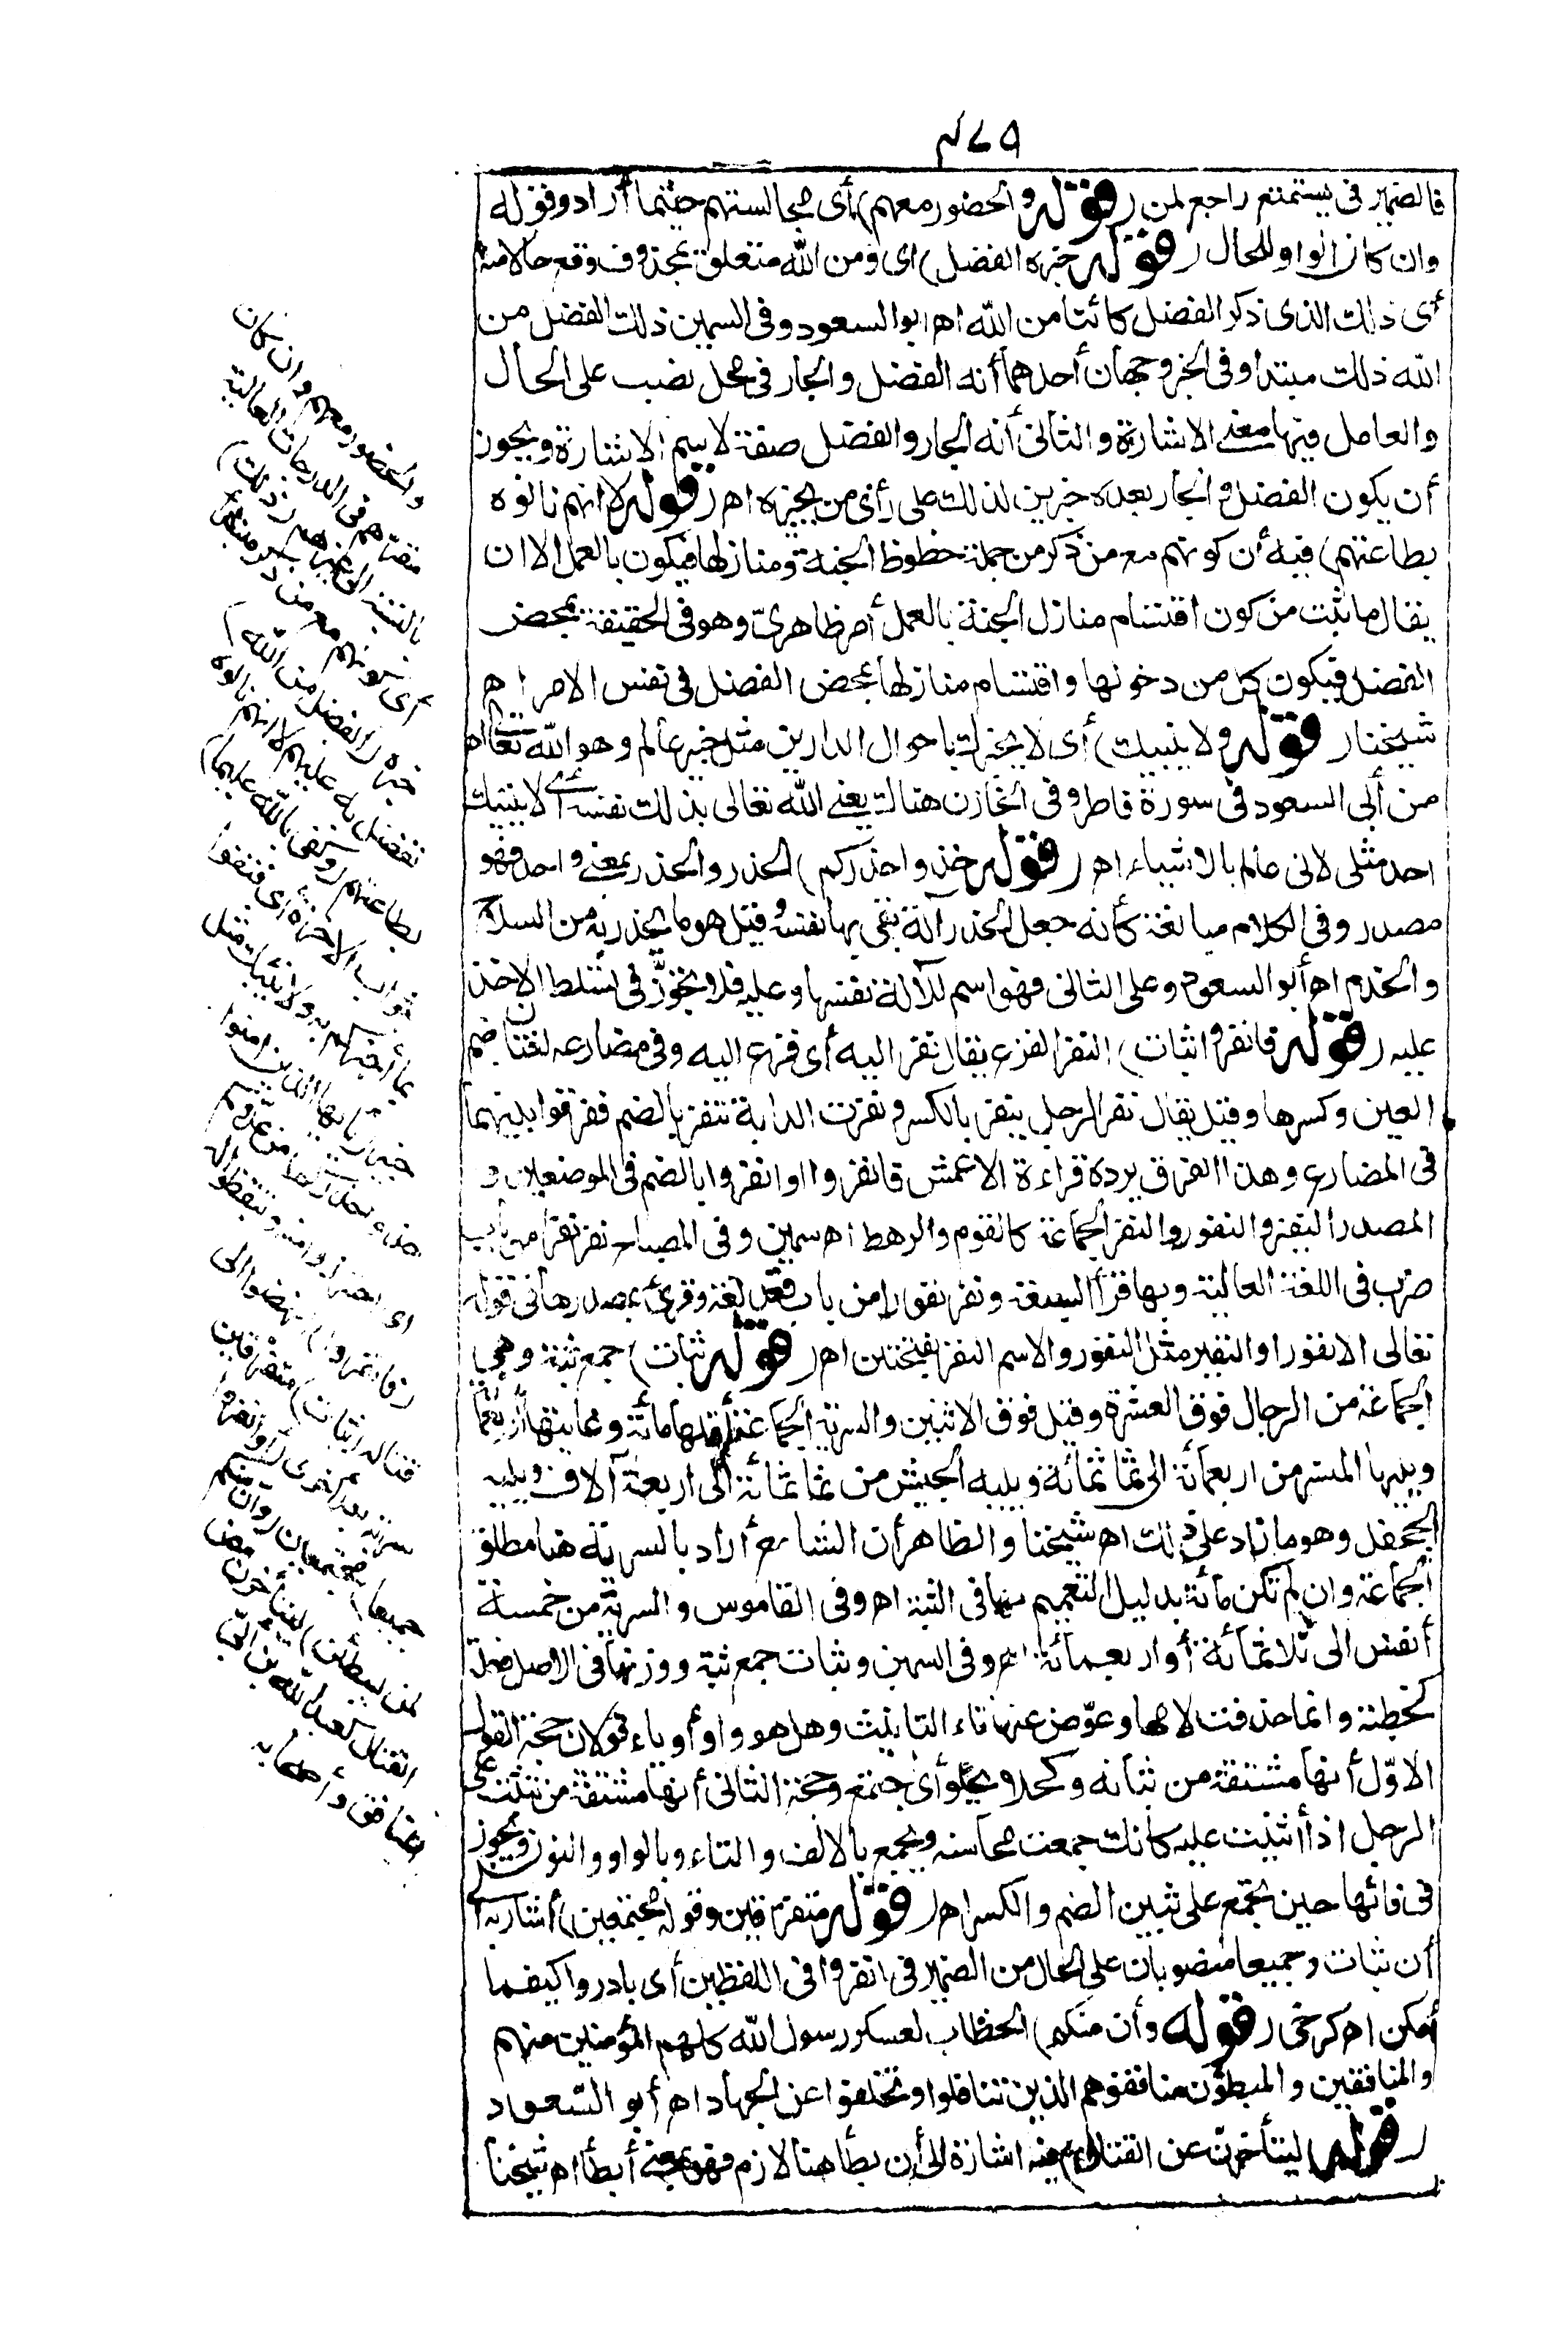 ٤٧٥
فالضمير فى يستمتع راجع لمن (قوله والحضور معهم) أى مجالستهم حيثما أرادوا وقوله
وان كان الواو للحال (قوله خبره الفضل) اى ومن الله متعلق بمحذوف وقع حالا منه
أى ذلك الذى ذكر الفضل كائنا من الله اهـ ابو السعود وفى السمين ذلك الفضل من
الله ذلك مبتدا وفى الخبر وجهان أحدهما أنه الفضل والجار فى محل نصب على الحال
والعامل فيها معنى الاشارة والثانى أنه الجار والفضل صفة لاسم الاشارة ويجوز
أن يكون الفضل والجار بعده خبرين لذلك على رأى من يجيزه اهـ (قوله لا انهم نالوه
بطاعتهم) فيه أن كونهم مع من ذكر من جملة حظوظ الجنة ومنازلها فيكون بالعمل الا ان
يقال ما ثبت من كون اقتسام منازل الجنة بالعمل أمر ظاهرى وهو فى الحقيقة بمحض
الفضل فيكون كل من دخولها واقتسام منازلها بمحض الفضل فى نفس الامر اهـ
شيخنا (قوله ولا ينبيك) أى لا يخبرك باحوال الدارين مثل خبير عالم وهو الله تعالى اهـ
من أبى السعود فى سورة فاطر وفى الخازن هنالك يعنى الله تعالى بذلك نفسه أى لا ينبيك
احد مثلى لانى عالم بالاشياء اهـ (قوله خذوا حذركم) الحذر والحذر بمعنى واحد فهو
مصدر وفى الكلام مبالغة كأنه جعل الحذر آلة يقى بها نفسه وقيل هو ما يحذر به من السلاح
والحزم اهـ أبو السعود وعلى الثانى فهو اسم للآلة نفسها وعليه فلا تجوّز فى تسلط الاخذ
عليه (قوله فانفروا ثبات) النفر الفزع يقال نفر اليه أى فزع اليه وفى مضارعه لغتان ضم
العين وكسرها وقيل يقال نفر الرجل ينفر بالكسر ونفرت الدابة تنفر بالضم ففرقوا بينهما
فى المضارع وهذا الفرق يرده قراءة الاعمش فانفروا او انفروا بالضم فى الموضعين و
المصدر النفير والنفور والنفر الجماعة كالقوم والرهط اهـ سمين وفى المصباح نفر نفرا من باب
ضرب فى اللغة العالية وبها قرأ السبعة ونفر نفورا من باب قعد لغة وقرئ بمصدرها فى قوله
تعالى الا نفورا والنفير مثل النفور والاسم النفر بفتحتين اهـ (قوله ثبات) جمع ثبة وهى
الجماعة من الرجال فوق العشرة وقيل فوق الاثنين والسرية الجماعة أقلها مائة وغايتها أربعمائة
ويليها المنسر من اربعمائة الى ثمانمائة ويليه الجيش من ثمانمائة الى اربعة آلاف ويليه
الجحفل وهو ما زاد على ذلك اهـ شيخنا والظاهر أن الشارح أراد بالسرية هنا مطلق
الجماعة وان لم تكن مائة بدليل التعميم فى الثبة اهـ وفى القاموس والسرية من خمسة
أنفس الى ثلاثمائة أو اربعمائة اهـ وفى السمين وثبات جمع ثبة ووزنها فى الاصل فعلة
كحطمة وانما حذفت لامها وعوّض عنها تاء التانيث وهل هو واو أو ياء قولان حجة القول
الاوّل أنها مشتقة من ثبا يثبو كخلا يخلو أى اجتمع وحجة الثانى أنها مشتقة من ثبيت على
الرجل اذا أثنيت عليه كانك جمعت محاسنه ويجمع بالالف والتاء وبالواو والنون ويجوز
فى فائها حين تجمع على ثبين الضم والكسر اهـ (قوله متفرّقين وقوله مجتمعين) أشار به الى
أن ثبات وجميعا منصوبان على الحال من الضمير فى انفروا فى اللفظين أى بادروا كيفما
أمكن اهـ كرخى (قوله وأن منكم) الخطاب لعسكر رسول الله كلهم المؤمنين منهم
والمنافقين والمبطؤن منافقوهم الذين تثاقلوا وتخلفوا عن الجهاد اهـ أبو السعود
(قوله ليتأخرنّ عن القتال) فيه اشارة الى أن بطأ هنا لازم فهو بمعنى أبطأ اهـ شيخنا
والحضور معهم وان كان
مقرهم فى الدرجات العالية
بالنسبة الى غيرهم (ذلك)
أى كونهم مع من ذكر مبتدأ
خبره (الفضل من الله)
تفضل به عليهم لا انهم نالوه
بطاعتهم (وكفى بالله عليما)
ثواب الآخرة أى فثقوا
بما أخبركم به ولا ينبئك مثل
خبير (يا أيها الذين آمنوا
خذوا حذركم) من عدوكم
اى احترزوا منه وتيقظوا له
(فانفروا) انهضوا الى
قتاله (ثبات) متفرقين
سرية بعد اخرى (أو انفروا
جميعا) مجتمعين (وان منكم
لمن ليبطئن) ليتأخرن عن
القتال كعبد الله بن ابى
المنافق وأصحابه